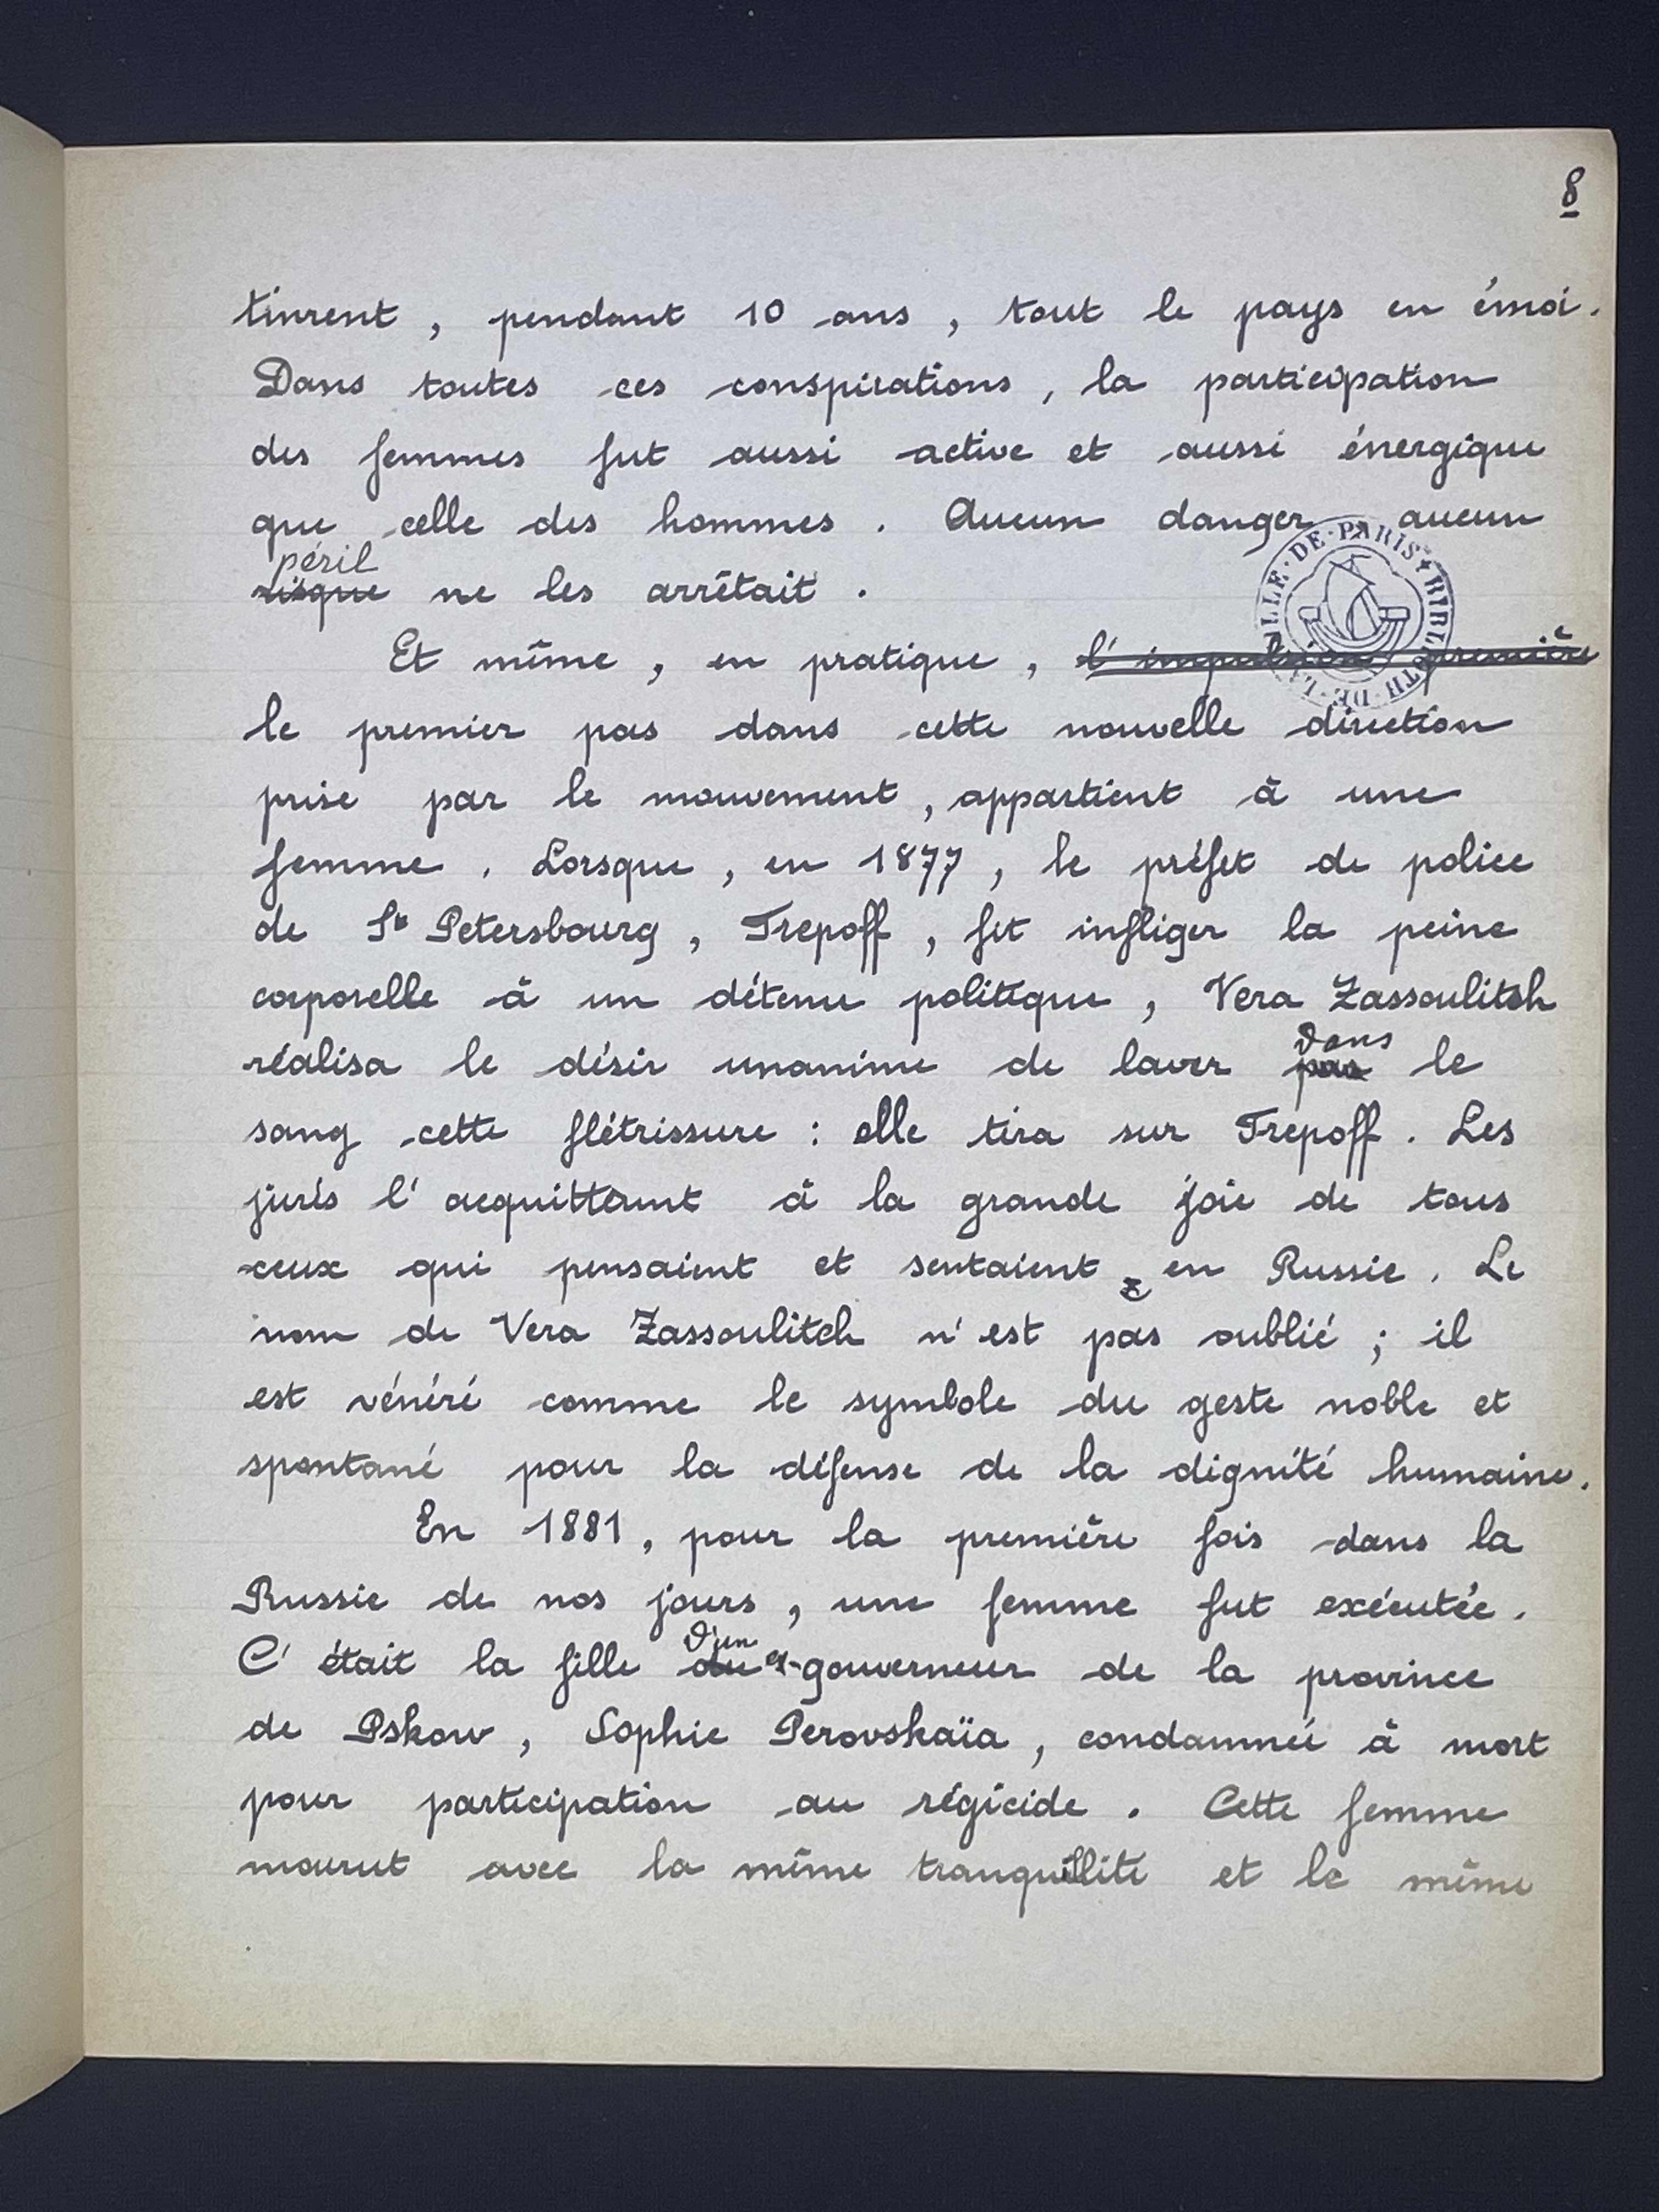 8
tinrent, pendant 10 ans, tout le pays en émoi.
Dans toutes ces conspirations, la participation
des femmes fut aussi active et aussi énergique
que celle des hommes. Aucun danger aucun
péril
risque ne les arrêtait.
VILLE·DE·PARIS BIBLIOTH·DE·LA
Et même, en pratique, l'impulsion première
le premier pas dans cette nouvelle direction
prise par le mouvement, appartient à une
femme. Lorsque, en 1877, le préfet de police
de St Petersbourg, Trepoff, fit infliger la peine
corporelle à un détenu politique, Vera Zassoulitsh
réalisa le désir unanime de laver dans pas le
sang cette flétrissure : elle tira sur Trepoff. Les
jurés l'acquittèrent à la grande joie de tous
ceux qui pensaient et sentaient en Russie. Le
nom de Vera Zassoulitch n'est pas oublié ; il
est vénéré comme le symbole du geste noble et
spontané pour la défense de la dignité humaine.
En 1881, pour la première fois dans la
Russie de nos jours, une femme fut exécutée.
C'était la fille du d'un ex-gouverneur de la province
de Pskow, Sophie Perovskaïa, condamnée à mort
pour participation au régicide. Cette femme
mourut avec la même tranquillité et le même